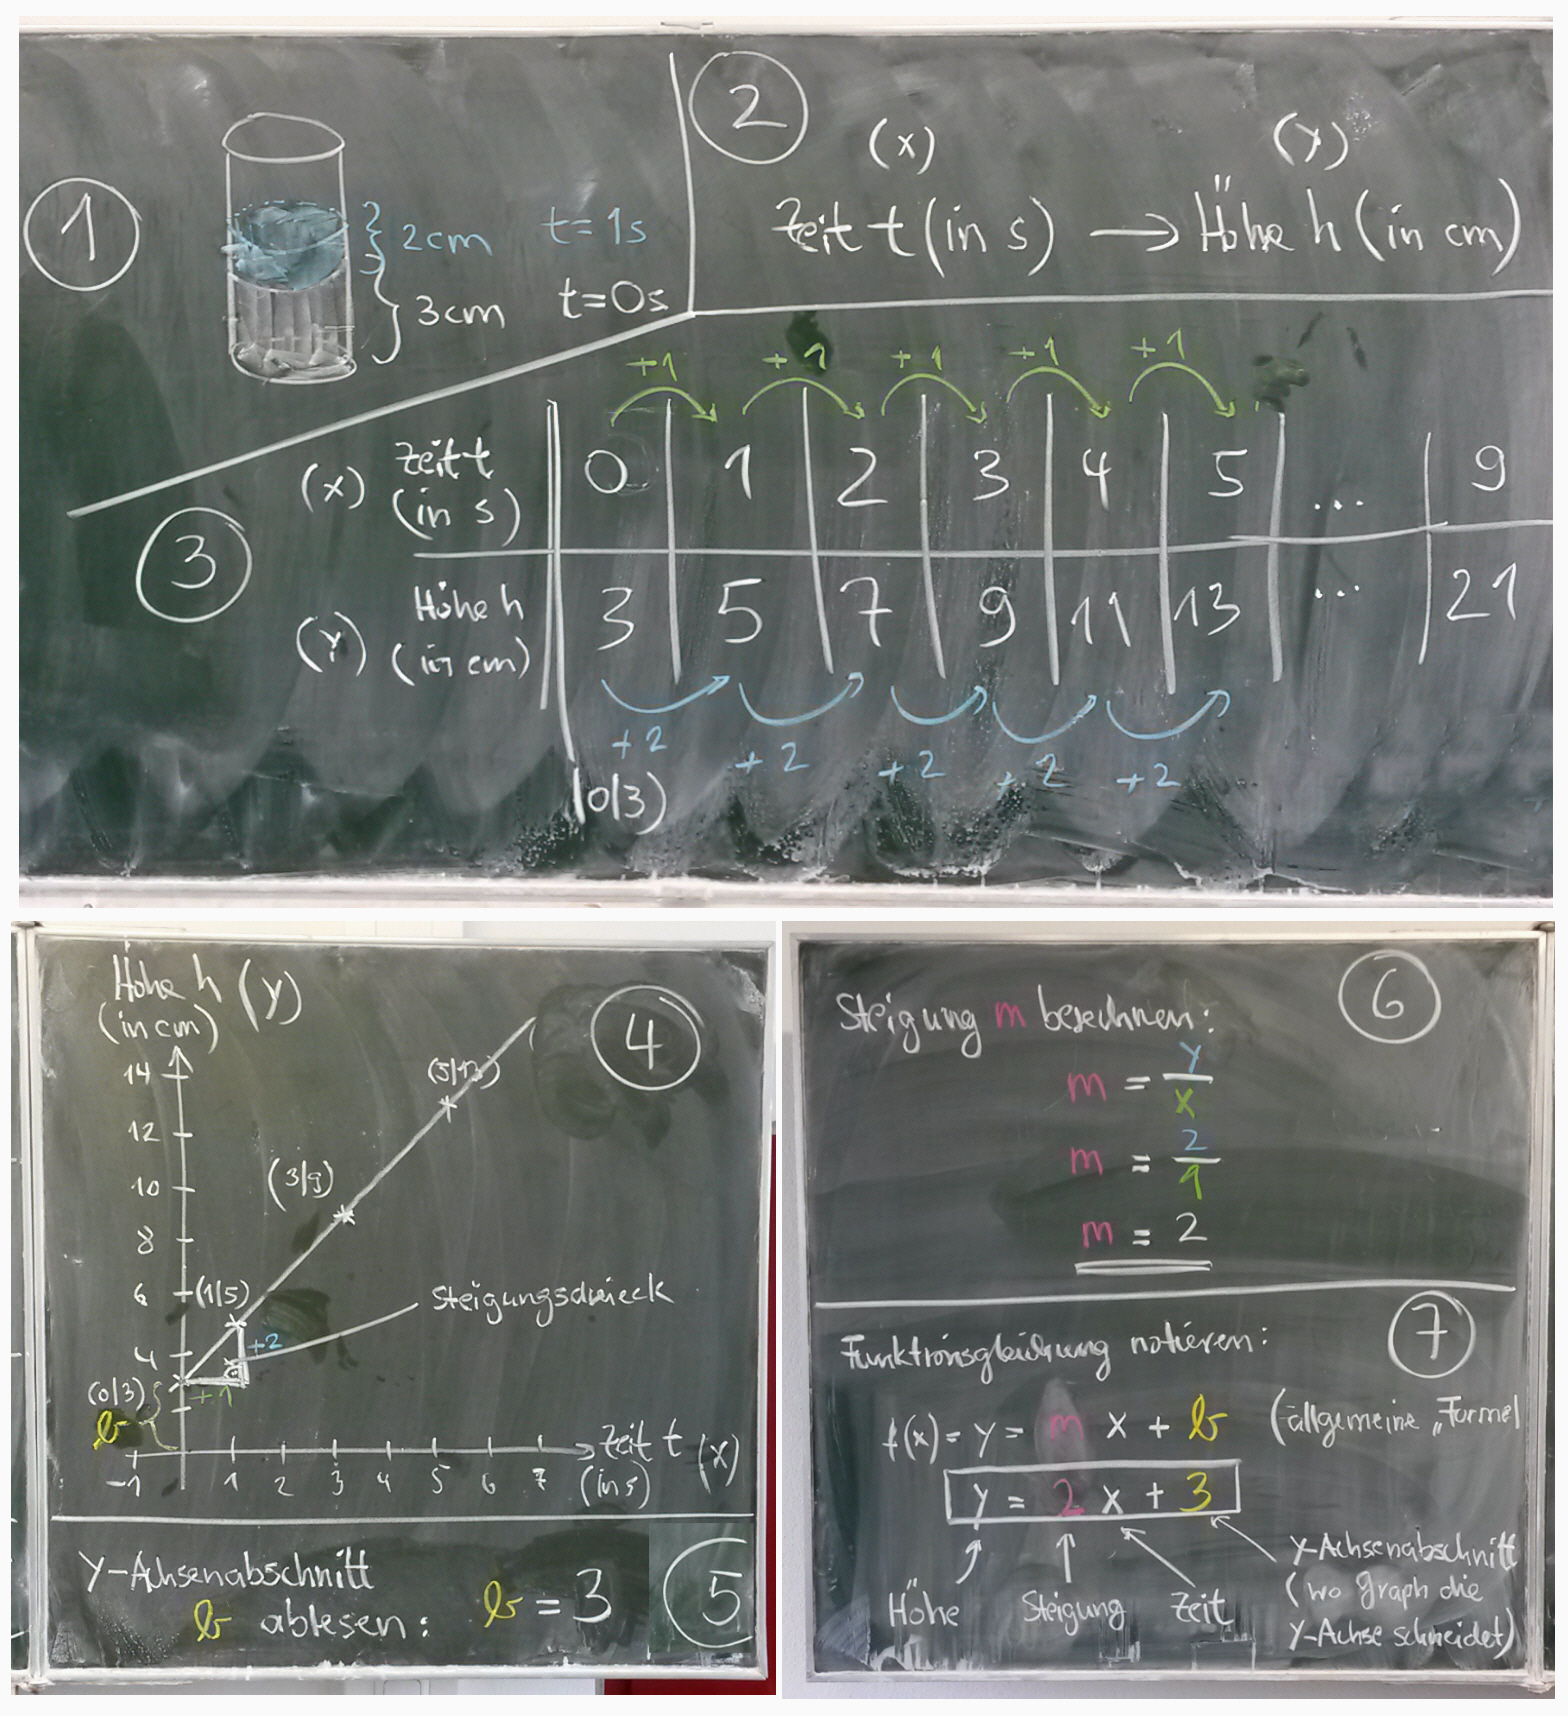 1
2cm t=1s
3cm t=0s
2
(x) (y)
Zeit t (in s) → Höhe h (in cm)
3
+1 +1 +1 +1 +1
(x) Zeit t (in s) 0 1 2 3 4 5 ... 9
(y) Höhe h (in cm) 3 5 7 9 11 13 ... 21
+2 +2 +2 +2 +2
(0|3)
4
Höhe h (y)
(in cm)
14
(5|13)
12
10
(3|9)
8
6 (1|5)
Steigungsdreieck
4 +2
(0|3) +1
b
-1 1 2 3 4 5 6 7
Zeit t (x)
(in s)
5
Y-Achsenabschnitt
b ablesen: b = 3
6
Steigung m berechnen:
m = y/x
m = 2/1
m = 2
7
Funktionsgleichung notieren:
f(x) = y = m x + b (allgemeine „Formel
y = 2 x + 3
Höhe Steigung Zeit
y-Achsenabschnitt
(wo Graph die
y-Achse schneidet)